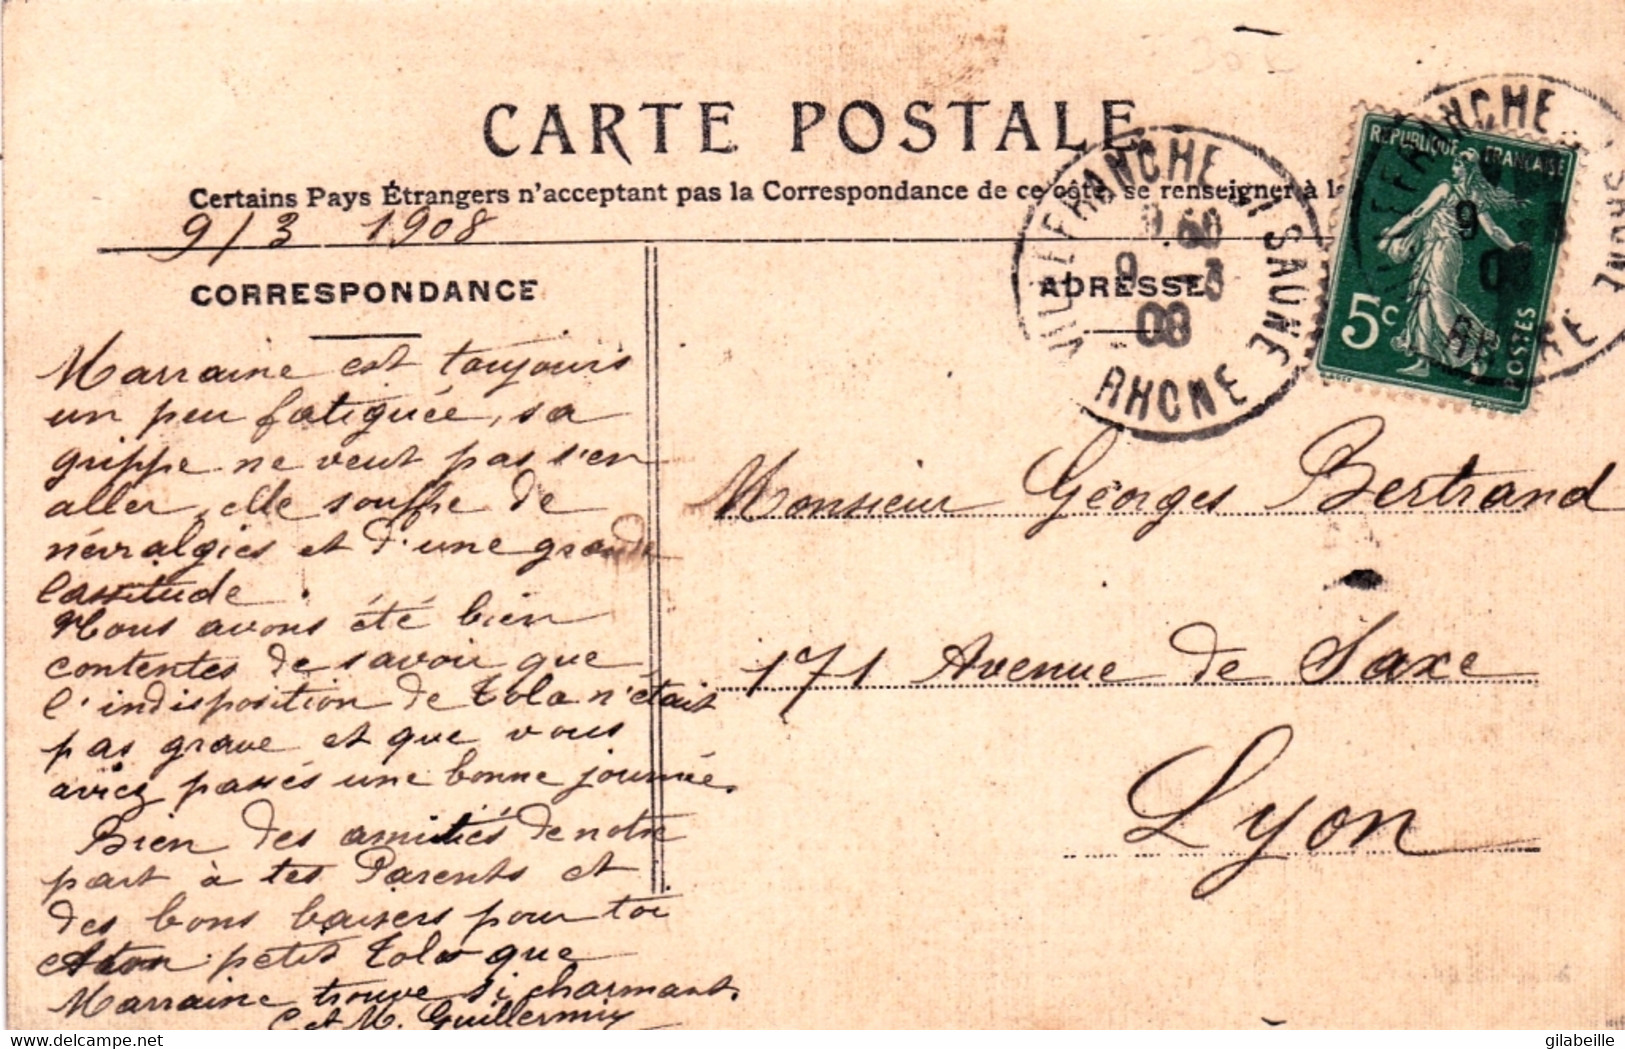 CARTE POSTALE
Certains Pays Étrangers n'acceptant pas la Correspondance de ce côté, se renseigner à la
9/3 1908
CORRESPONDANCE
ADRESSE
VILLEFRANCHE S/ SAONE
9 - 3
08
RHONE
REPUBLIQUE FRANÇAISE
5c
POSTES
Marraine est toujours
un peu fatiguée, sa
grippe ne veut pas s'en
aller, elle souffre de
névralgies et d'une grande
lassitude.
Nous avons été bien
contentes de savoir que
l'indisposition de Tola n'était
pas grave et que vous
aviez passés une bonne journée.
Bien des amitiés de notre
part à tes Parents et
des bons baisers pour toi
et ton petit Tola que
Marraine trouve si charmant.
C et M. Guillermin
Monsieur Georges Bertrand
171 Avenue de Saxe
Lyon
delcampe.net
gilabeille